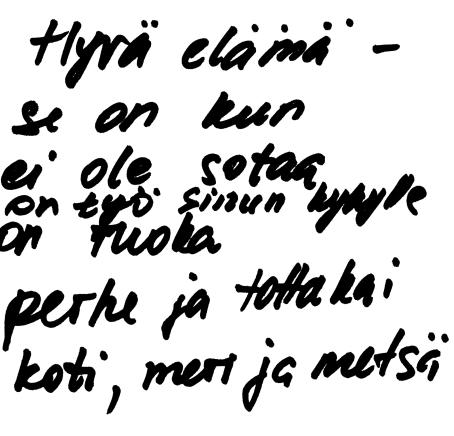 Hyvä elämä -
se on kun
ei ole sotaa
on työ sinun kyhylle
on ruoka
perhe ja tottakai
koti, meri ja metsä